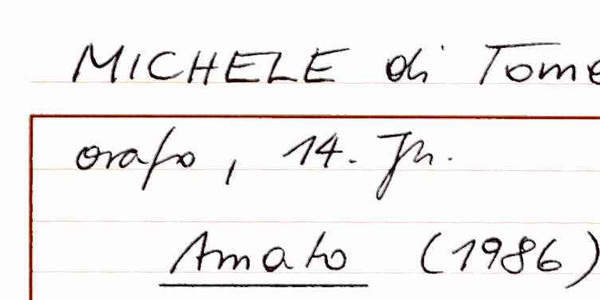 MICHELE di Tome
orafo, 14. Jh.
Amato (1986)